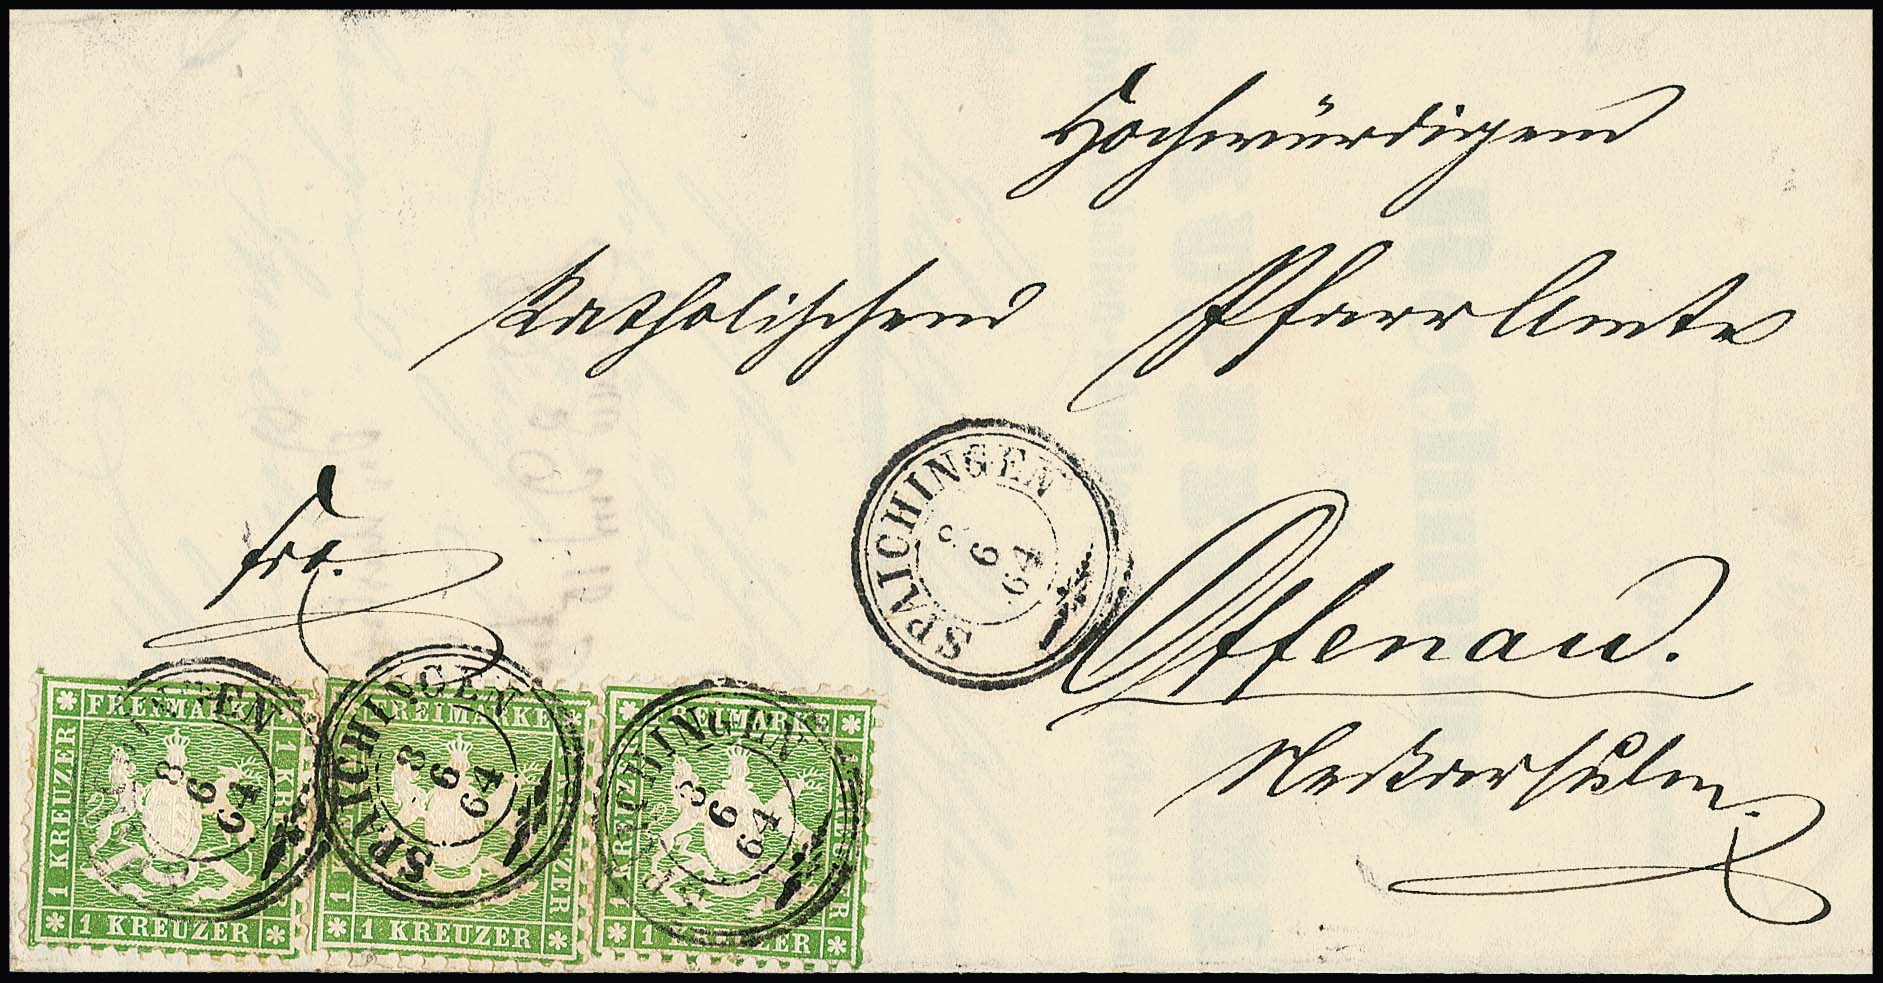 Hochwürdigem
Katholischem Pfarr Amte
SPAICHINGEN
8
6
64
Offenau.
Neckarsulm.
fro.
FREIMARKE
1 KREUZER
1 KREUZER
1 KREUZER
SPAICHINGEN
8
6
64
FREIMARKE
1 KREUZER
1 KREUZER
1 KREUZER
SPAICHINGEN
8
6
64
FREIMARKE
1 KREUZER
1 KREUZER
1 KREUZER
SPAICHINGEN
8
6
64